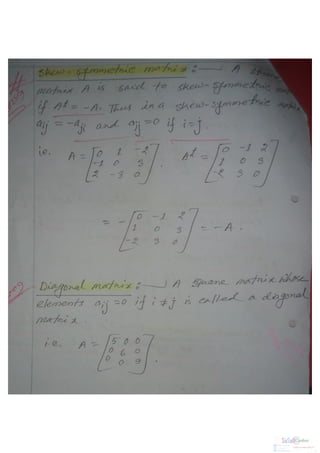 Skew-symmetric matrix :— A square
matrix A is said to skew-symmetric
if Aᵗ = -A. Thus in a skew-symmetric matrix
aij = -aji and aij = 0 if i=j.
i.e. A = [0 1 -2 , Aᵗ = [0 -1 2
-1 0 3 1 0 3
2 -3 0] -2 3 0]
= - [0 -1 2
1 0 3 = -A.
-2 3 0]
Diagonal matrix :— A square matrix whose
elements aij = 0 if i ≠ j is called a diagonal
matrix.
i.e. A = [5 0 0
0 6 0
0 0 9] .